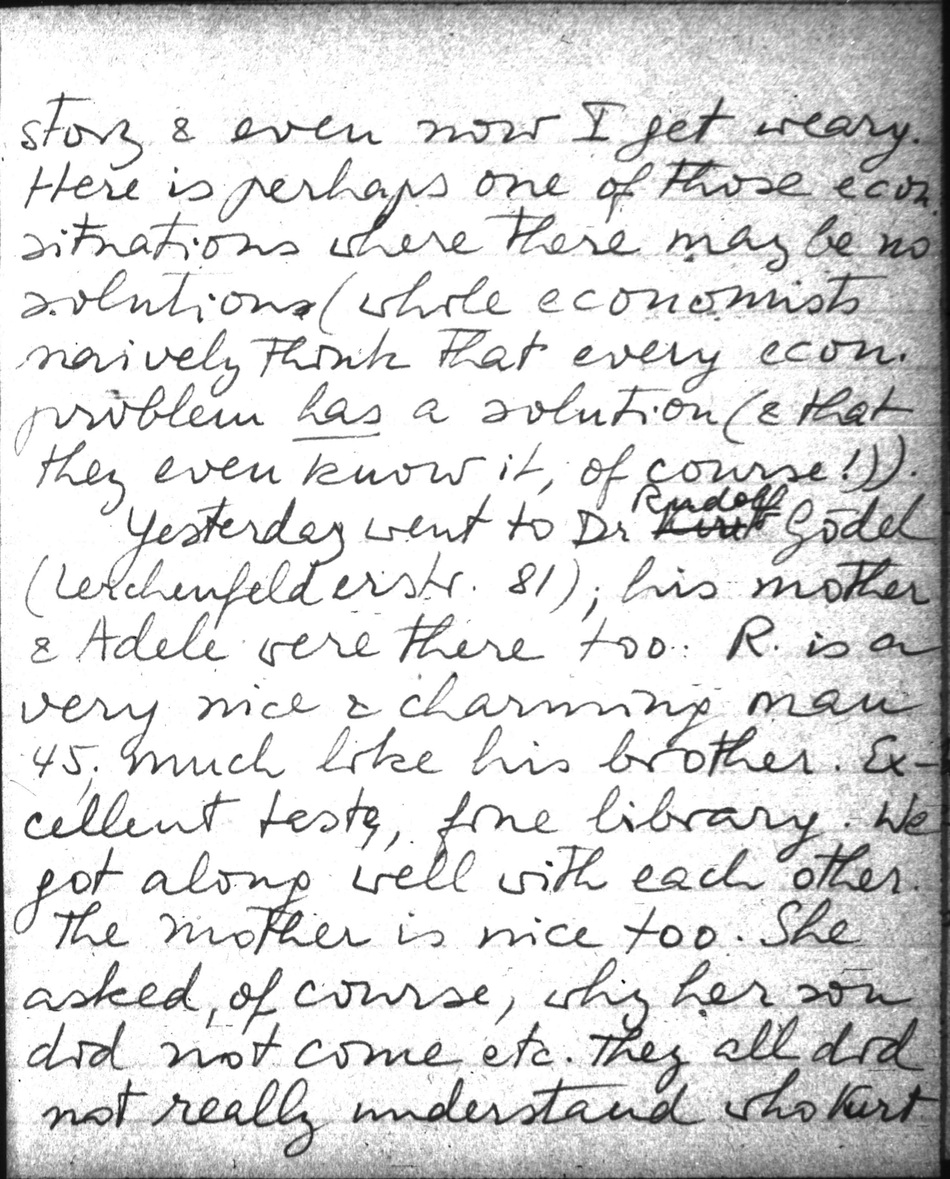 story & even now I get weary.
Here is perhaps one of those econ.
situations where there may be no
solutions (while economists
naively think that every econ.
problem has a solution (& that
they even know it, of course!)).
Yesterday went to Dr Kurt Rudolf Gödel
(Lerchenfelderstr. 81); his mother
& Adele were there too. R. is a
very nice & charming man
45, much like his brother. Ex-
cellent taste, fine library. We
got along well with each other.
The mother is nice too. She
asked, of course, why her son
did not come etc. They all did
not really understand who Kurt